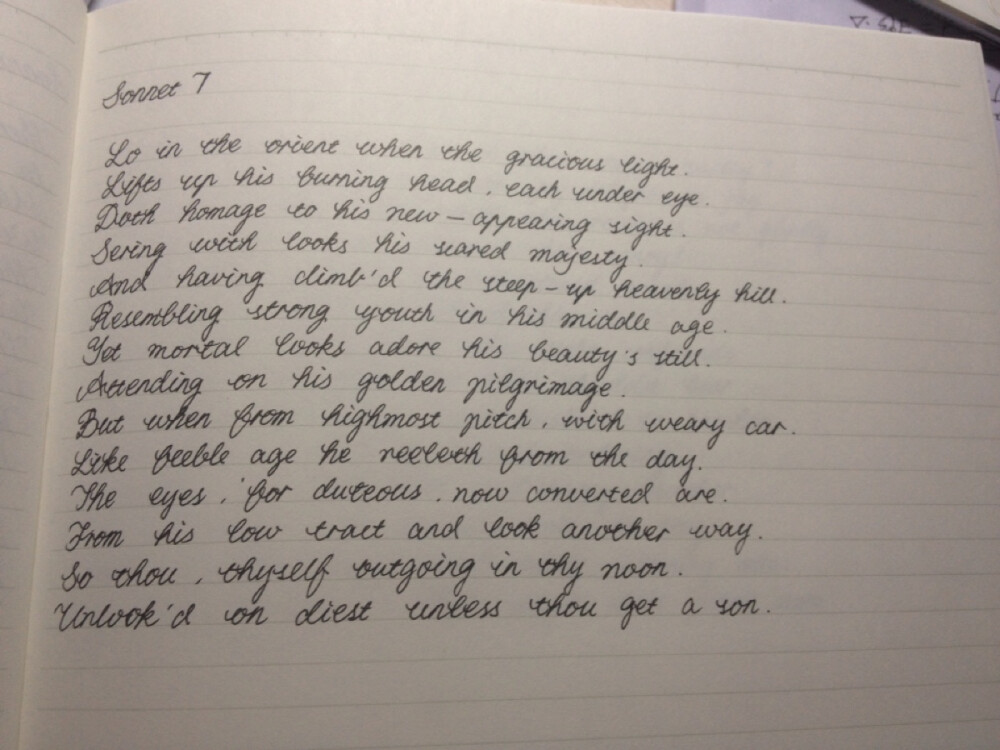 Sonnet 7
Lo in the orient when the gracious light.
Lifts up his burning head, each under eye.
Doth homage to his new-appearing sight.
Sering with looks his scared majesty.
And having climb'd the steep-up heavenly hill.
Resembling strong youth in his middle age.
Yet mortal looks adore his beauty's still.
Attending on his golden pilgrimage.
But when from highmost pitch, with weary car.
Like feeble age he reeleth from the day.
The eyes, 'for duteous, now converted are.
From his low tract and look another way.
So thou, thyself outgoing in thy noon.
Unlook'd on diest unless thou get a son.